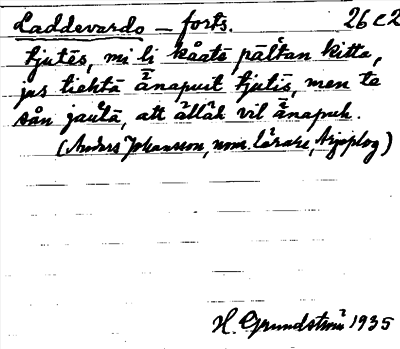 Laddevardo – forts. 26 C 2
tjutēs, mi li kåatē pāltan kitta,
jas tiehtā ānapuit tjutīs, men te
sån jautā, att ällāk vil ānapuh.
(Anders Johansson, nom. lärare, Arjeplog)
H. Grundström 1935